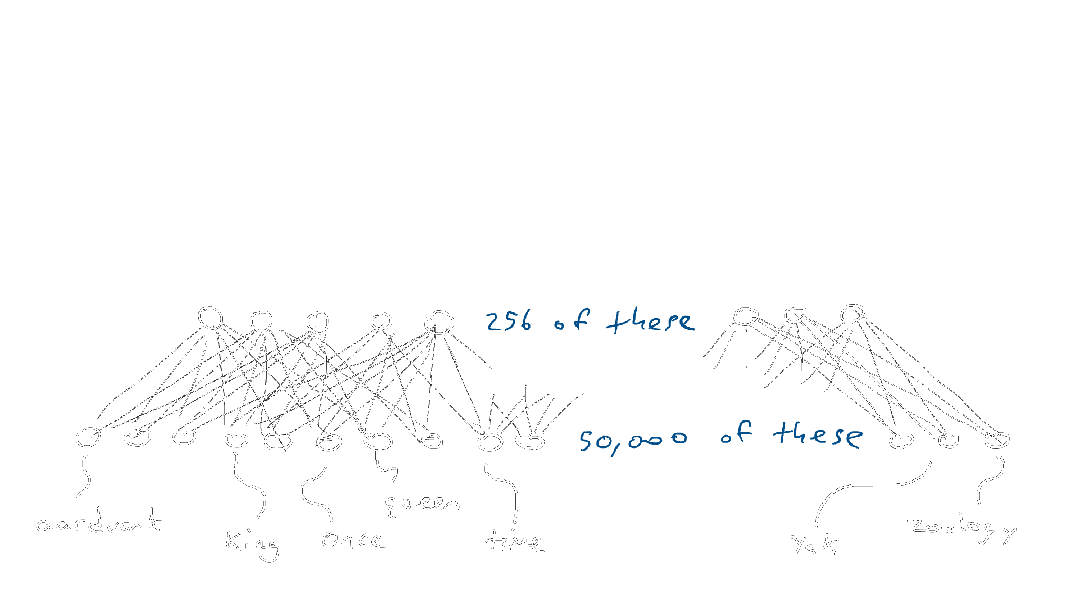 256 of these
50,000 of these
aardvark
King
once
queen
time
Yak
zoology